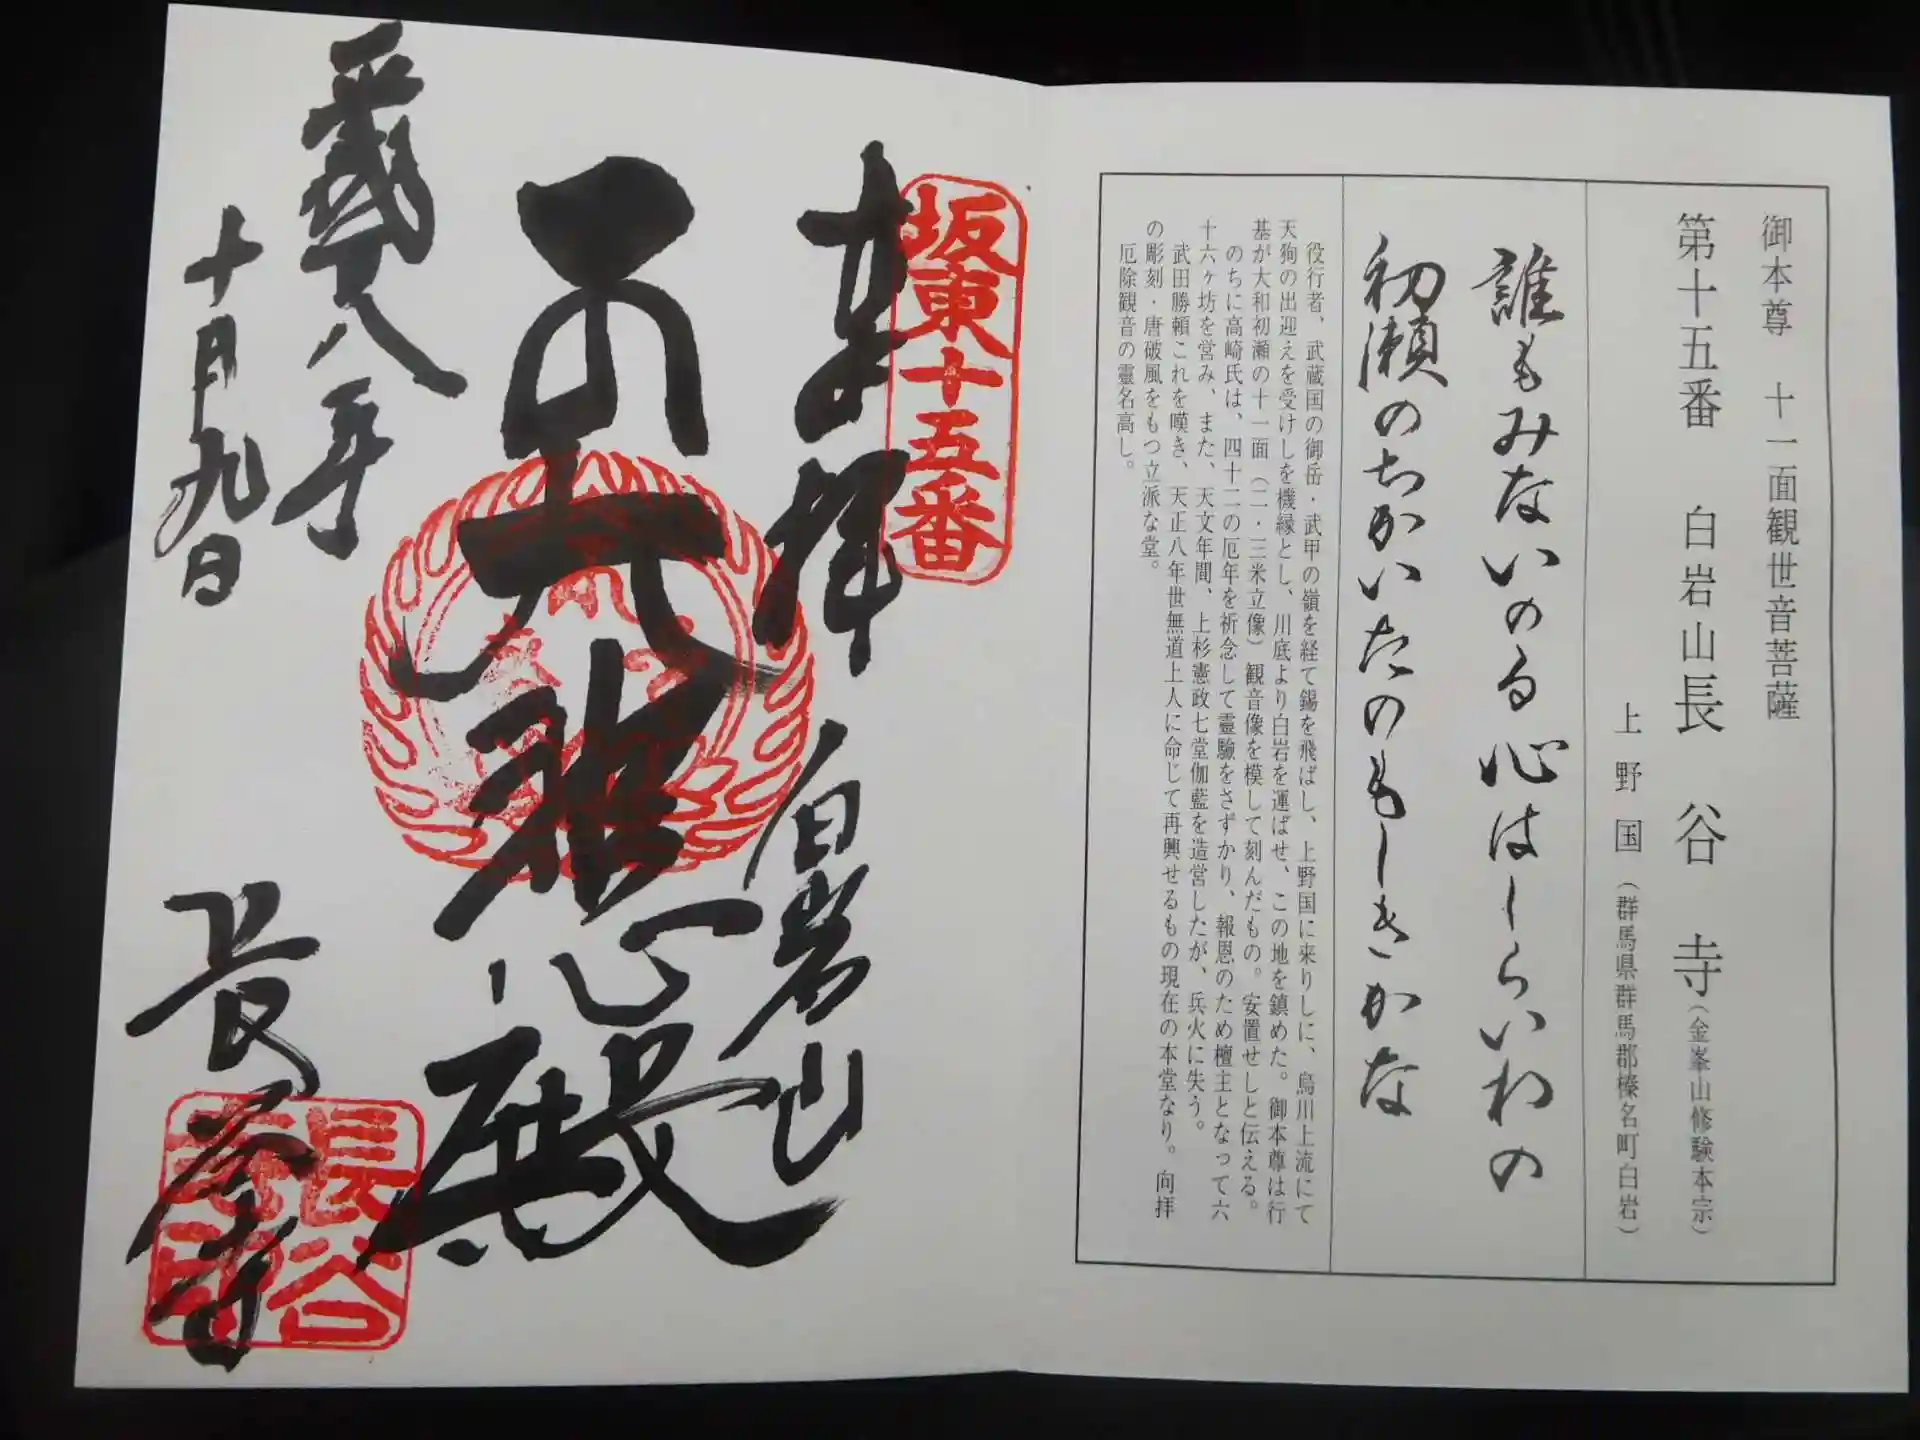 御本尊　十一面観世音菩薩
第十五番　白岩山長谷寺（金峯山修験本宗）
上野国（群馬県群馬郡榛名町白岩）
誰もみないのる心はしらいわの
初瀬のちかいたのもしきかな
役行者、武蔵国の御岳・武甲の嶺を経て錫を飛ばし、上野国に来りしに、烏川上流にて
天狗の出迎えを受けしを機縁とし、川底より白岩を運ばせ、この地を鎮めた。御本尊は行
基が大和初瀬の十一面（二・三米立像）観音像を模して刻んだもの。安置せしと伝える。
のちに高崎氏は、四十二の厄年を祈念して霊験をさずかり、報恩のため檀主となって六
十六ヶ坊を営み、また、天文年間、上杉憲政七堂伽藍を造営したが、兵火に失う。
武田勝頼これを嘆き、天正八年世無道上人に命じて再興せるもの現在の本堂なり。向拝
の彫刻・唐破風をもつ立派な堂。
厄除観音の霊名高し。
坂東十五番
奉拝
白岩山
大悲殿
平成廿八年
十月九日
長谷寺
長谷
寺印